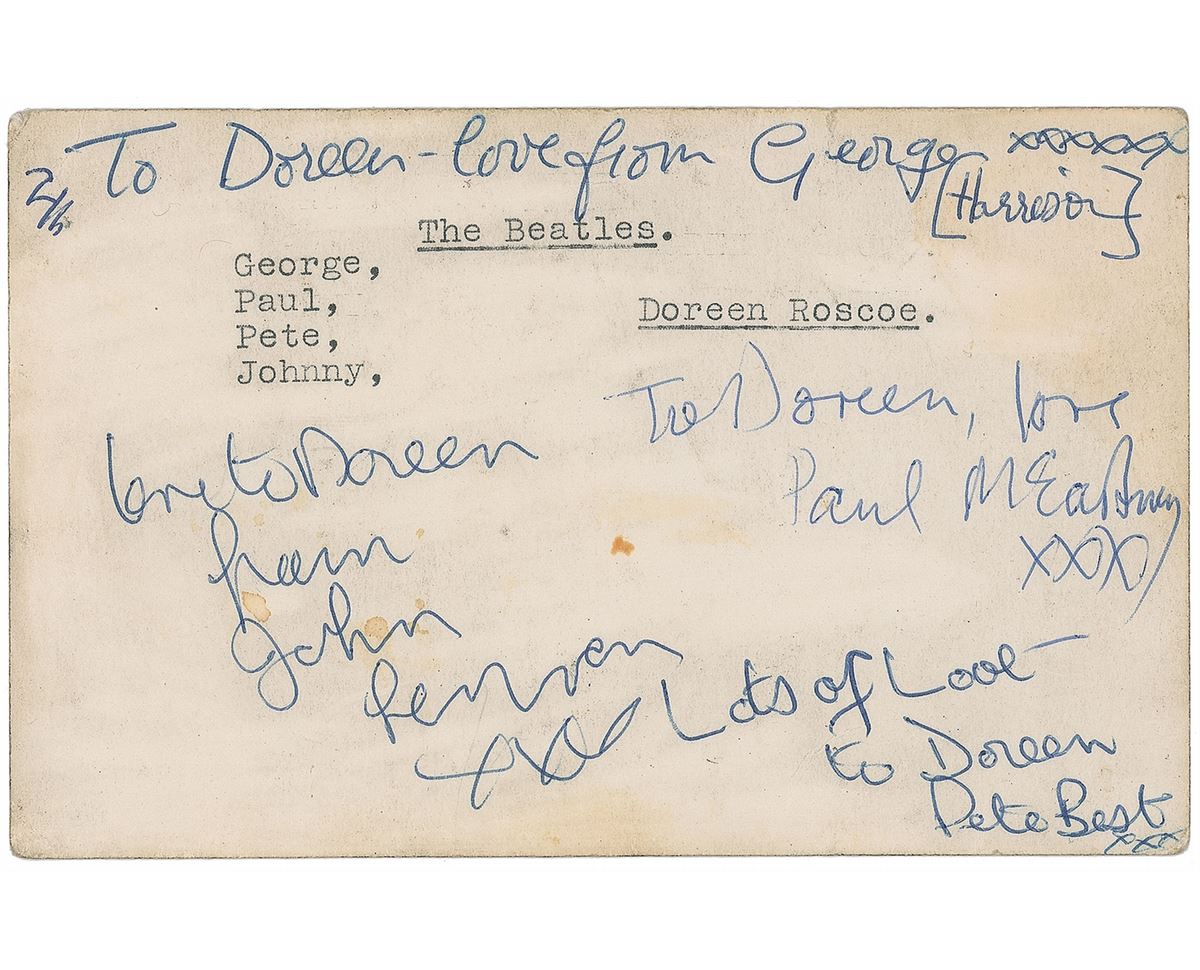 To Doreen - love from George xxxxxx
[Harrison]
2/6
The Beatles.
George,
Paul,
Pete,
Johnny,
Doreen Roscoe.
To Doreen, love
Paul McCartney
XXXX
love to Doreen
from
John
Lennon
xxx
Lots of Love
to Doreen
Pete Best
xxx